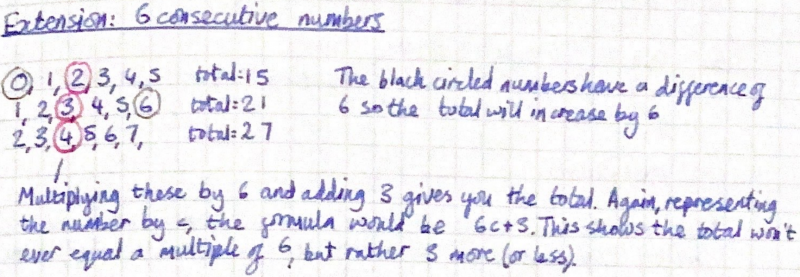 Extension: 6 consecutive numbers
0, 1, 2, 3, 4, 5 total:15
1, 2, 3, 4, 5, 6 total:21
2, 3, 4, 5, 6, 7, total:27
The black circled numbers have a difference of
6 so the total will increase by 6
Multiplying these by 6 and adding 3 gives you the total. Again, representing
the number by c, the formula would be 6c+3. This shows the total won't
ever equal a multiple of 6, but rather 3 more (or less).